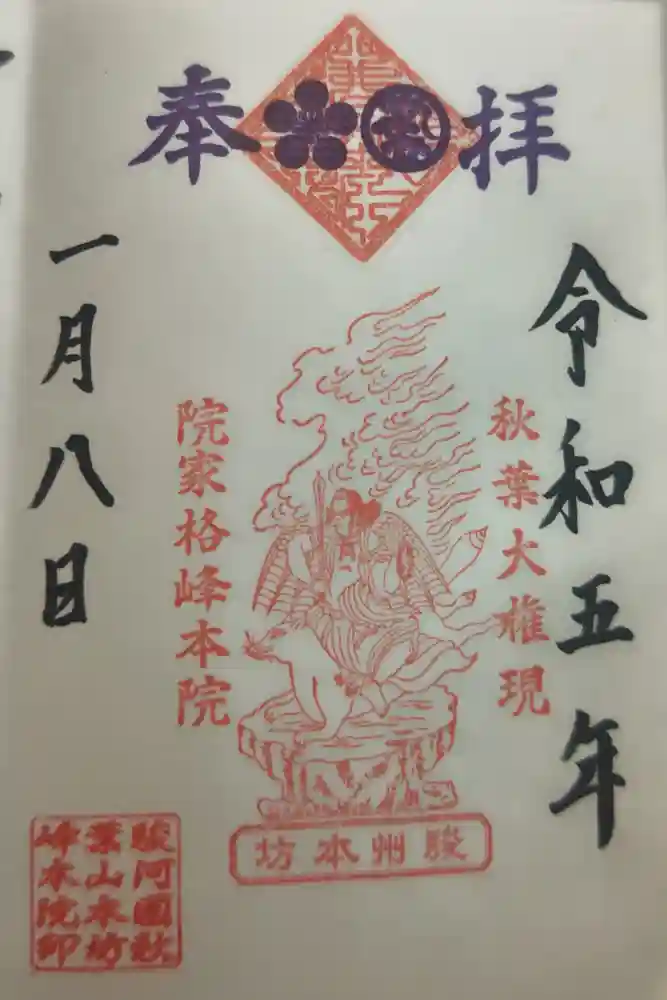 奉拝
令和五年
秋葉大権現
院家格峰本院
一月八日
駿州本坊
駿河國秋
葉山本坊
峰本院印